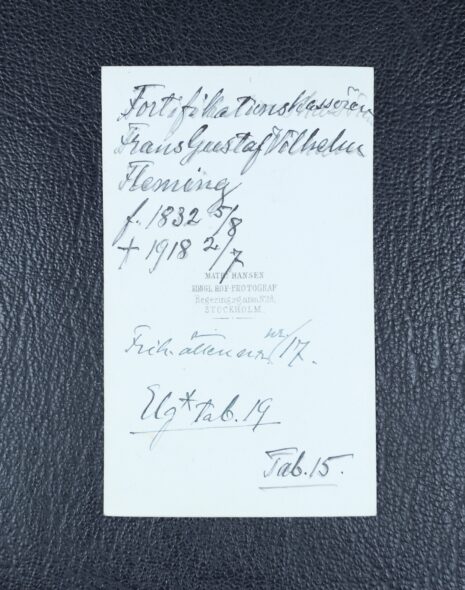 Fortifikationskassören
Frans Gustaf Vilhelm
Fleming
f. 1832 5/8
+ 1918 2/7
MATH. HANSEN
KONGL. HOF-FOTOGRAF
Regeringsgatan
STOCKHOLM.
Frih. ätten nr/17.
Elg* Tab. 19
Tab. 15.